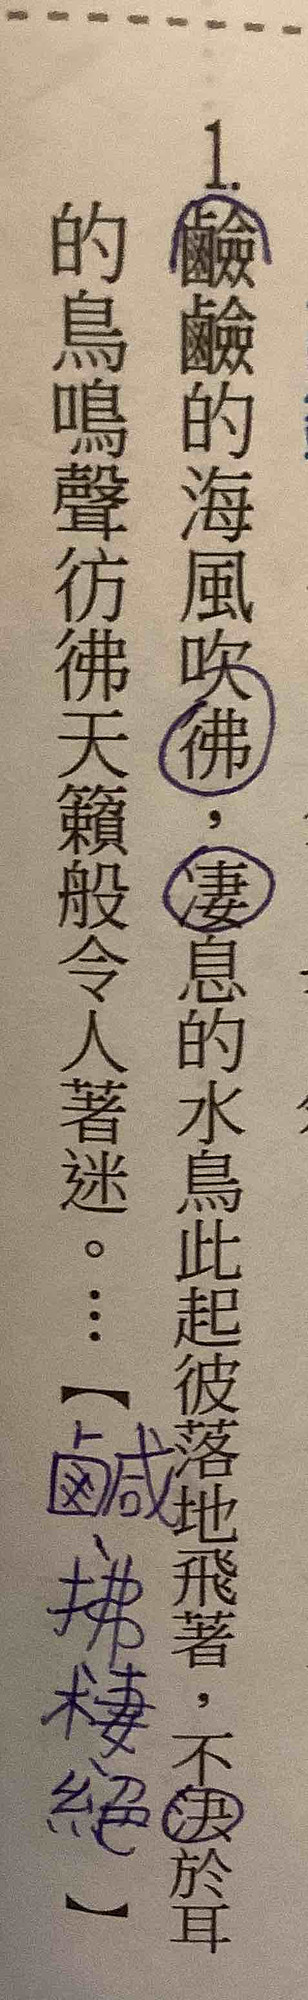 1.鹼鹼的海風吹彿，凄息的水鳥此起彼落地飛著，不決於耳
的鳥鳴聲彷彿天籟般令人著迷。…【鹹、拂棲、絕】